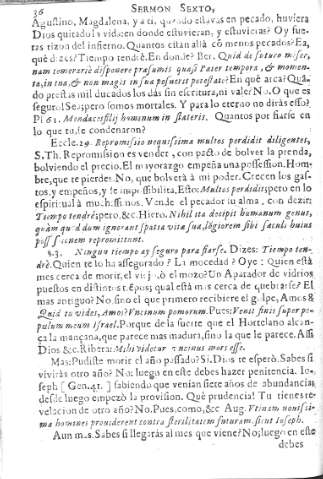 36 SERMON SEXTO,
Agustino, Magdalena, y a ti, quando estavas en pecado, huviera
Dios quitado la vida: en donde estuvieran, y estuvieras? Oy fue-
ras tizon del infierno. Quantos estàn allà cõ menos pecados? Ea,
què dizes? Tiempo tendrè. En donde? Ber. Quid de futuro miser,
nam temerariè disponere præsumis quasi Pater tempora, & momen-
ta, in tua, & non magis in sua posuerit potestate? En què arca? Quã-
do prestas mil ducados los dàs sin escritura, ni vale? No. O que es
seguro! Seaspero somos mortales. Y para lo eterno no diràs esso?
Ps 61. Mendaces filij hominum in stateris. Quantos por fiarse en
lo que tu, se condenaron?
Eccle. 29. Repromissio nequissima multos perdidit diligentes,
S. Th. Repromission es vender, con pacto de bolver la prenda,
bolviendo el precio. El mayorazgo empeña una possession. Hom-
bre, que te pierdes. No, que bolverà à mi poder. Crecen los gas-
tos, y empeños, y se impossibilita, Esto: Multos perdidit; pero en lo
espiritual à muchissimos. Vende el pecador su alma, con dezir:
Tiempo tendrè; pero, &c. Hiero. Nihil ita decipit humanum genus,
quàm quòd dum ignorant spatia vitæ suæ, longiorem sibi sæculi huius
possessionem repromittunt.
§. 3. Ningun tiempo ay seguro para fiarse. Dizes: Tiempo ten-
drè. Quien te lo ha assegurado? La mocedad? Oye: Quien està
mes cerca de morir, el viejo, ò el mozo? Un Aparador de vidrios
puestos en distintos Epos; qual està mas cerca de quebrarse? El
mas antiguo? No, sino el que primero recibiere el golpe, Amos 8
Quid tu vides, Amos? Vncinum pomorum. Pues: Venit finis super po-
pulum meum Israel. Porque de la suerte que el Hortelano alcan-
ça la mançana, que parece mas madura, sino la que le parece. Assi
Dios &c. Ribera: Mihi videtur uncinus mors esse.
Mas: Pudiste morir el año passado? Si. Dios te esperò. Sabes si
vivirás otro año? No; luego en este debes hazer penitencia. Io-
seph [Gen. 41.] sabiendo que venian siete años de abundancias
desde luego empezò la provision. Què prudencia! Tu tienes re-
velacion de otro año? No. Pues, como, &c Aug. Vtinam nonissi-
ma homines providerent contra sterilitatem futuram sicut Ioseph.
Aun mas. Sabes si llegaràs al mes que viene? No; luego en este
debes